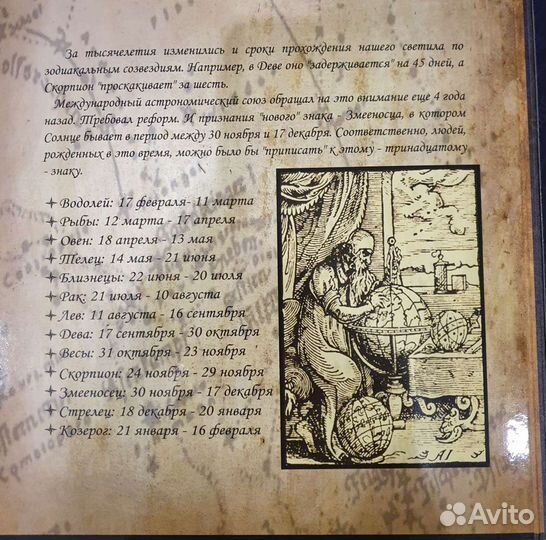 За тысячелетия изменились и сроки прохождения нашего светила по
зодиакальным созвездиям. Например, в Деве оно "задерживается" на 45 дней, а
Скорпион "проскакивает" за шесть.
Международный астрономический союз обращал на это внимание еще 4 года
назад. Требовал реформ. И признания "нового" знака - Змееносца, в котором
Солнце бывает в период между 30 ноября и 17 декабря. Соответственно, людей,
рожденных в это время, можно было бы "приписать" к этому - тринадцатому
- знаку.
Водолей: 17 февраля- 11 марта
Рыбы: 12 марта - 17 апреля
Овен: 18 апреля - 13 мая
Телец: 14 мая - 21 июня
Близнецы: 22 июня - 20 июля
Рак: 21 июля - 10 августа
Лев: 11 августа - 16 сентября
Дева: 17 сентября - 30 октября
Весы: 31 октября - 23 ноября
Скорпион: 24 ноября - 29 ноября
Змееносец: 30 ноября - 17 декабря
Стрелец: 18 декабря - 20 января
Козерог: 21 января - 16 февраля
AI
Avito